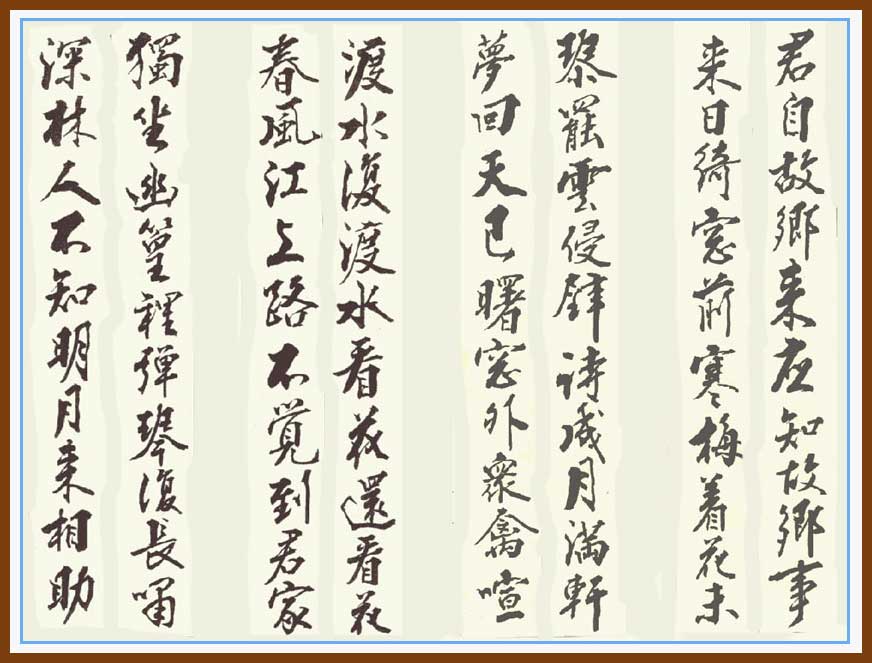 君自故鄉来应知故鄉事
来日綺窓前寒梅着花未
黎罷雲侵肆詩成月滿軒
夢回天已曙窓外衆禽喧
渡水復渡水看花還看花
春風江上路不覚到君家
獨坐幽篁裡弾琴復長嘯
深林人不知明月来相助